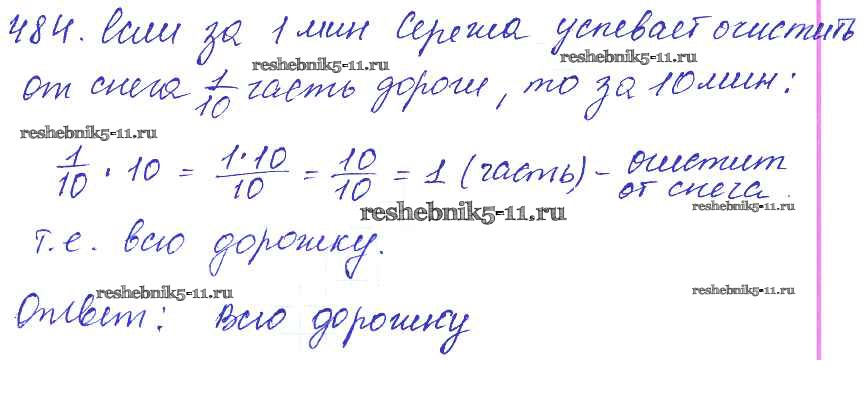 484. Если за 1 мин Сережа успевает очистить
reshebnik5-11.ru reshebnik5-11.ru
от снега 1/10 часть дороги, то за 10 мин:
reshebnik5-11.ru
1/10 · 10 = 1·10/10 = 10/10 = 1 (часть) – очистит
от снега.
reshebnik5-11.ru reshebnik5-11.ru
т.е. всю дорожку.
reshebnik5-11.ru reshebnik5-11.ru
Ответ: всю дорожку